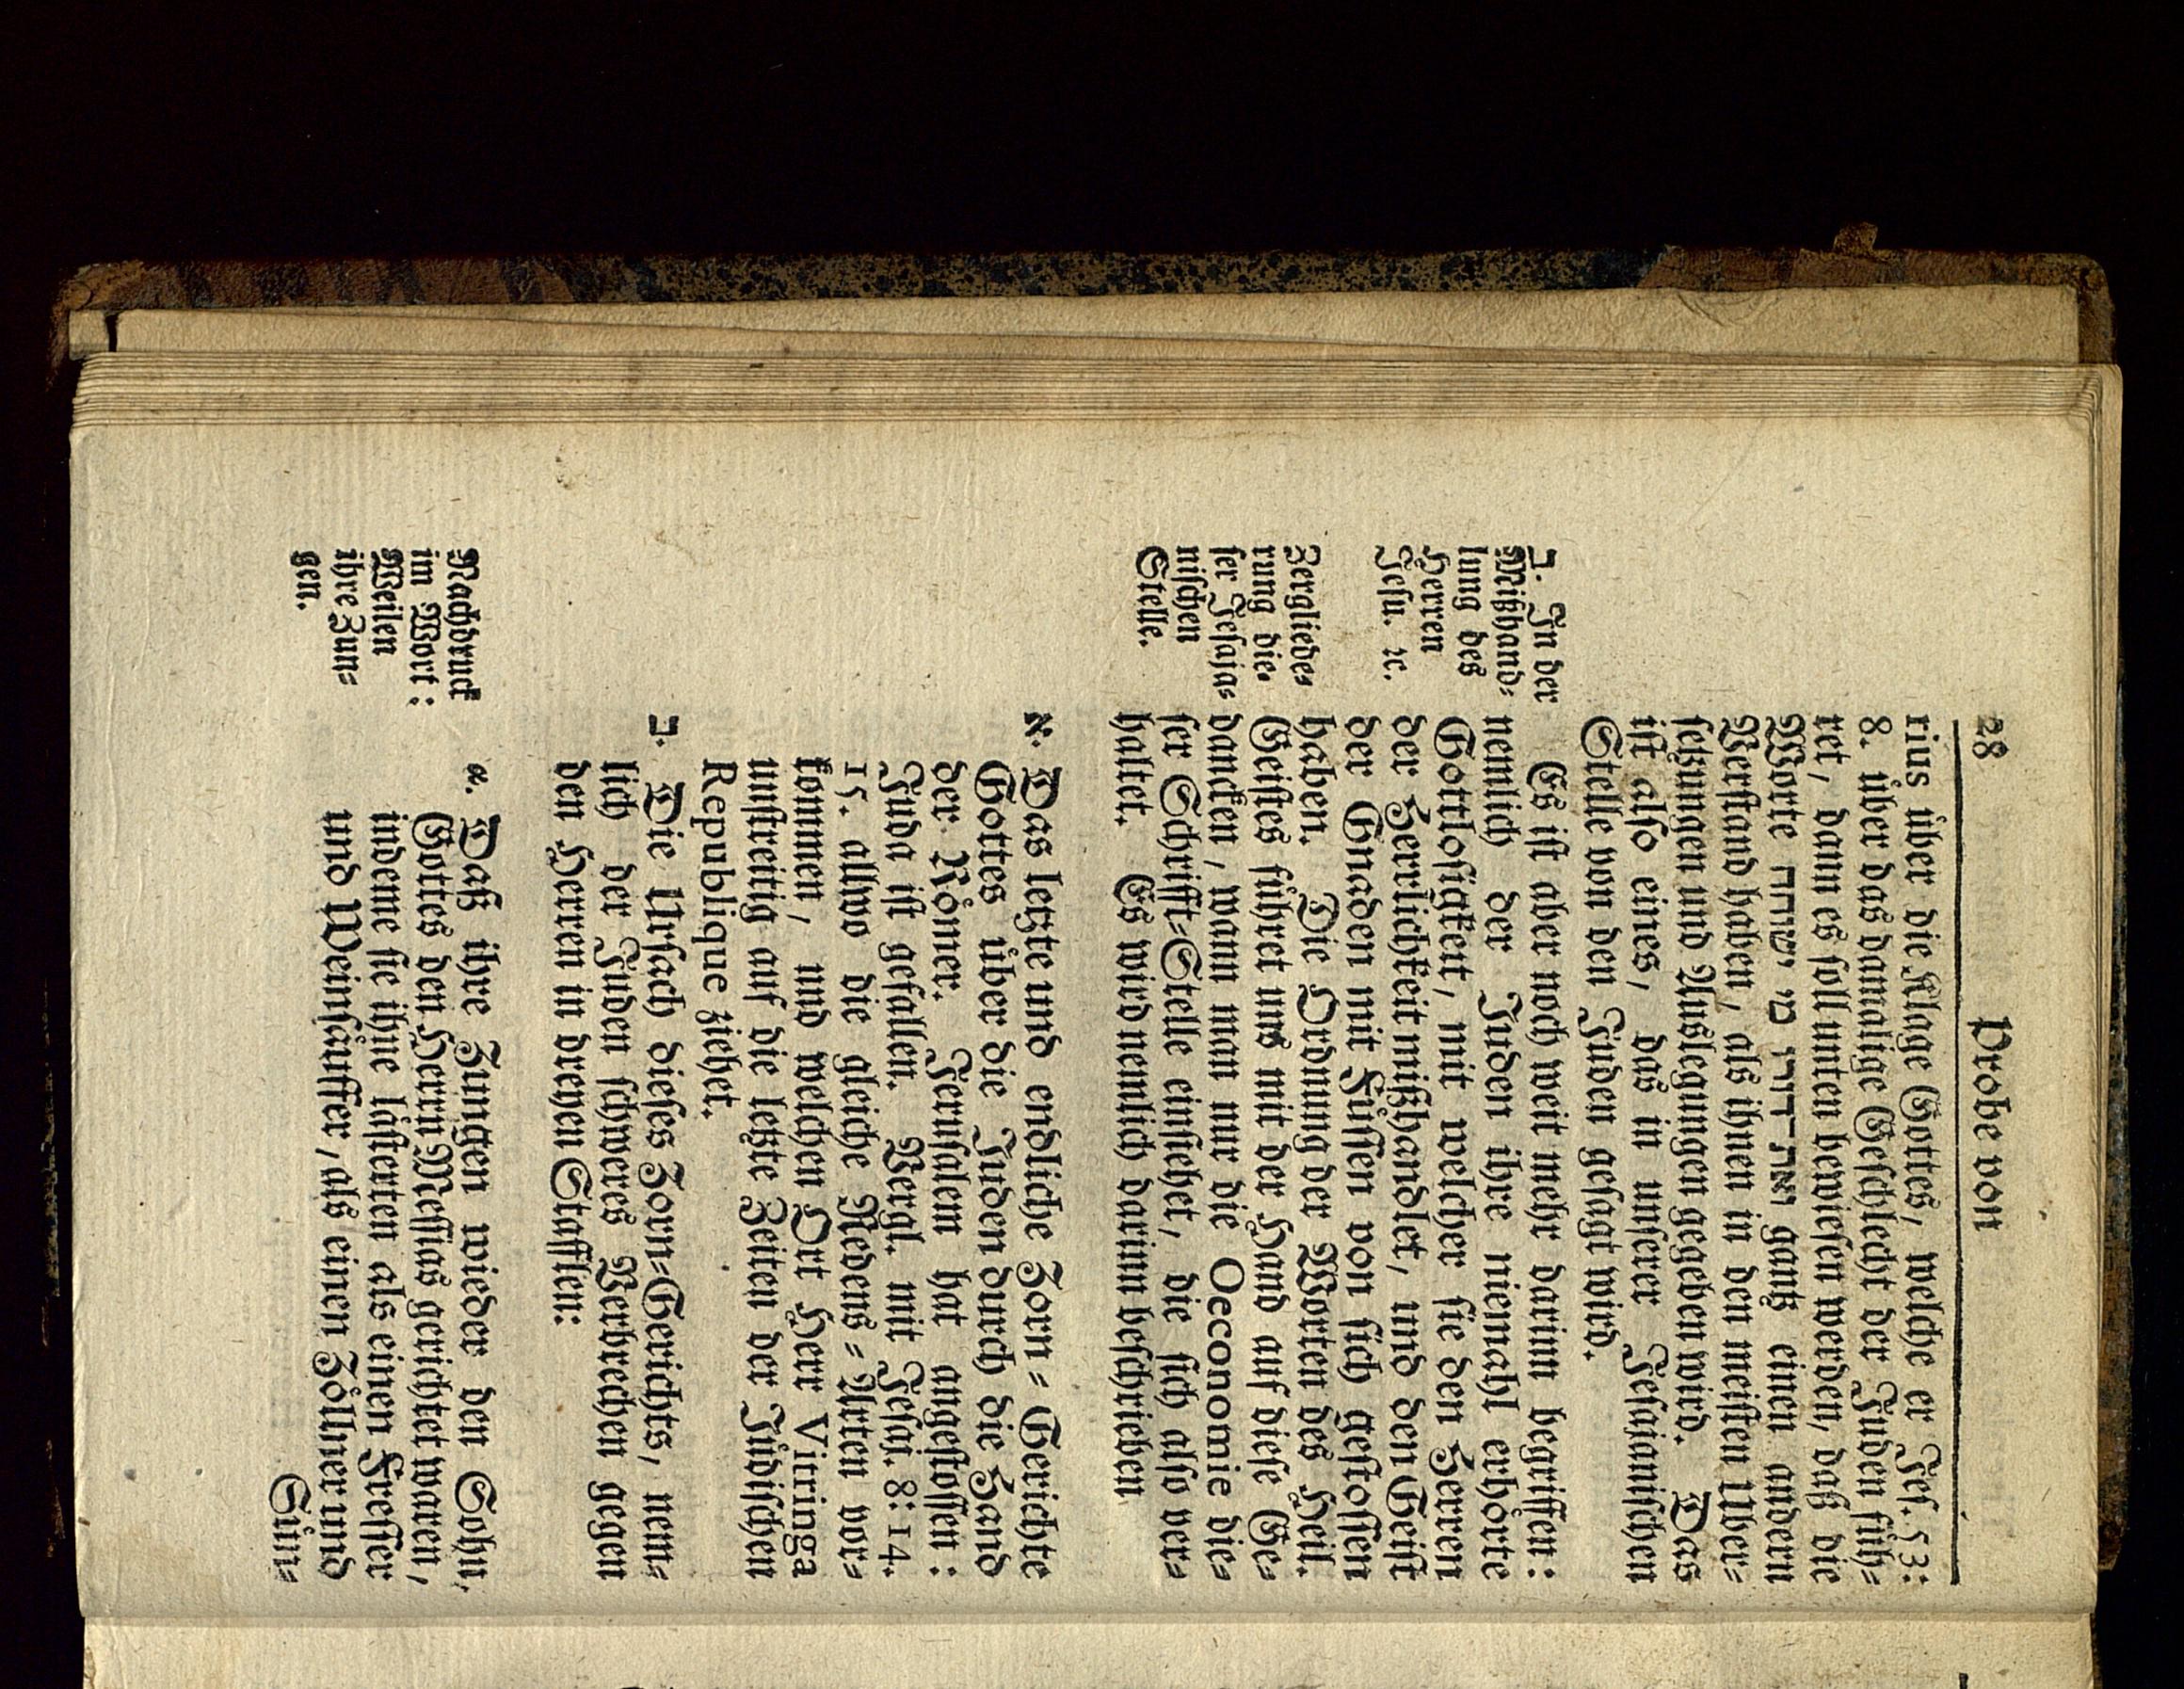 28 Probe von
rius über die Klage Gottes, welche er Jes. 53:
8. über das damalige Geschlecht der Juden füh⸗
ret, dann es soll unten bewiesen werden, daß die
Worte ואת דורו מי ישוחח gantz einen andern
Verstand haben, als ihnen in den meisten Uber⸗
setzungen und Auslegungen gegeben wird. Das
ist also eines, das in unserer Jesaianischen
Stelle von den Juden gesagt wird.
ב. In der
Mißhand⸗
lung des
Herren
Jesu. ꝛc.
Es ist aber noch weit mehr darinn begriffen:
nemlich der Juden ihre niemahl erhörte
Gottlosigkeit, mit welcher sie den Herren
der Herrlichkeit mißhandlet, und den Geist
der Gnaden mit Füssen von sich gestossen
haben. Die Ordnung der Worten des Heil.
Geistes führet uns mit der Hand auf diese Ge⸗
dancken, wann man nur die Oeconomie die⸗
ser Schrifft⸗Stelle einsiehet, die sich also ver⸗
haltet. Es wird nemlich darinn beschrieben
Zergliede⸗
rung die⸗
ser Jesaja⸗
nischen
Stelle.
א. Das letzte und endliche Zorn⸗Gerichte
Gottes über die Juden durch die Hand
der Römer. Jerusalem hat angestossen:
Juda ist gefallen. Vergl. mit Jesaj. 8: 14.
15. allwo die gleiche Redens⸗Arten vor⸗
kommen, und welchen Ort Herr Vitringa
unstreitig auf die letzte Zeiten der Jüdischen
Republique ziehet.
ב. Die Ursach dieses Zorn⸗Gerichts, nem⸗
lich der Juden schweres Verbrechen gegen
den Herren in dreyen Stafflen:
Nachdruck
im Wort:
Weilen
ihre Zun⸗
gen.
α. Daß ihre Zungen wieder den Sohn
Gottes den Herrn Messias gerichtet waren,
indeme sie ihne lästerten als einen Fresser
und Weinsäuffer, als einen Zöllner und
Sün⸗